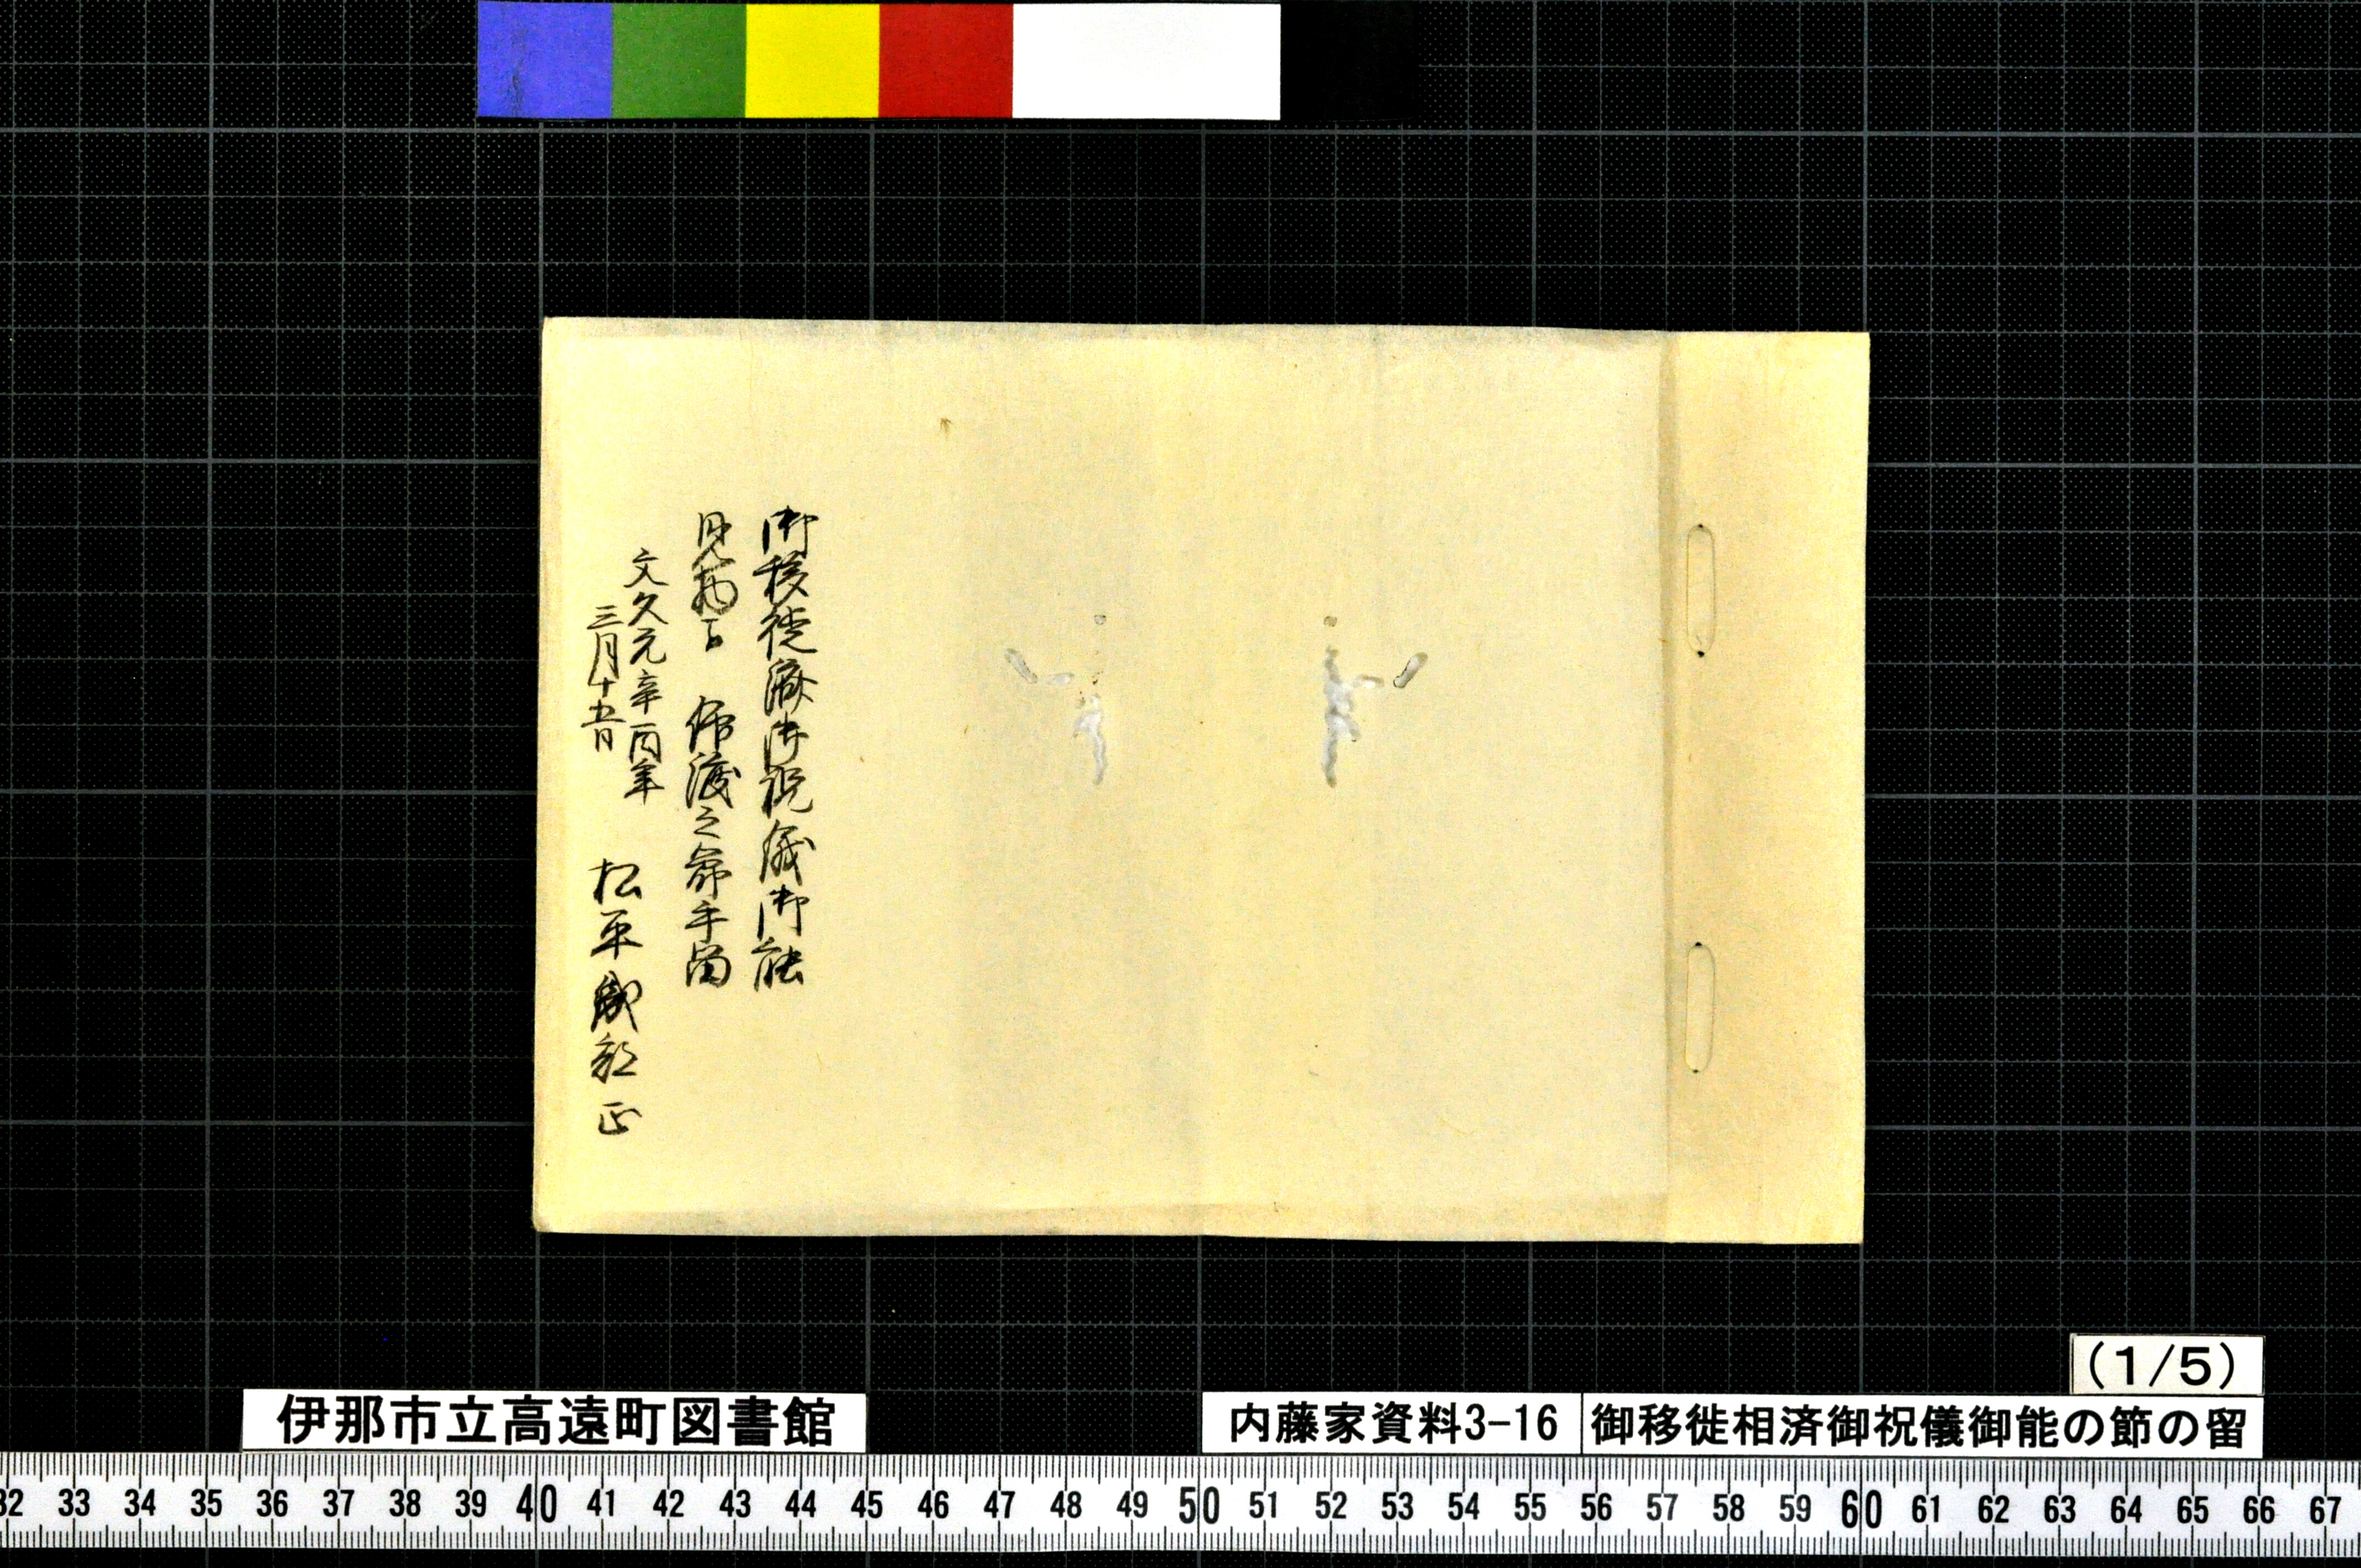 御移徙済御祝儀御能
見物被 仰渡之節手留
文久元辛酉年
三月十五日
松平織部正
(1/5)
伊那市立高遠町図書館
内藤家資料3-16
御移徙相済御祝儀御能の節の留
32 33 34 35 36 37 38 39 40 41 42 43 44 45 46 47 48 49 50 51 52 53 54 55 56 57 58 59 60 61 62 63 64 65 66 67